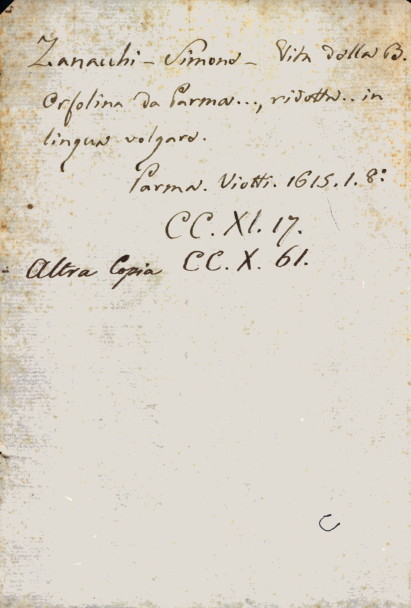 Zanacchi - Simone - Vita della B.
Orsolina da Parma..., ridotta.. in
lingua volgare.
Parma. Viotti. 1615. 1. 8:
CC. XI. 17.
Altra Copia CC. X. 61.
C